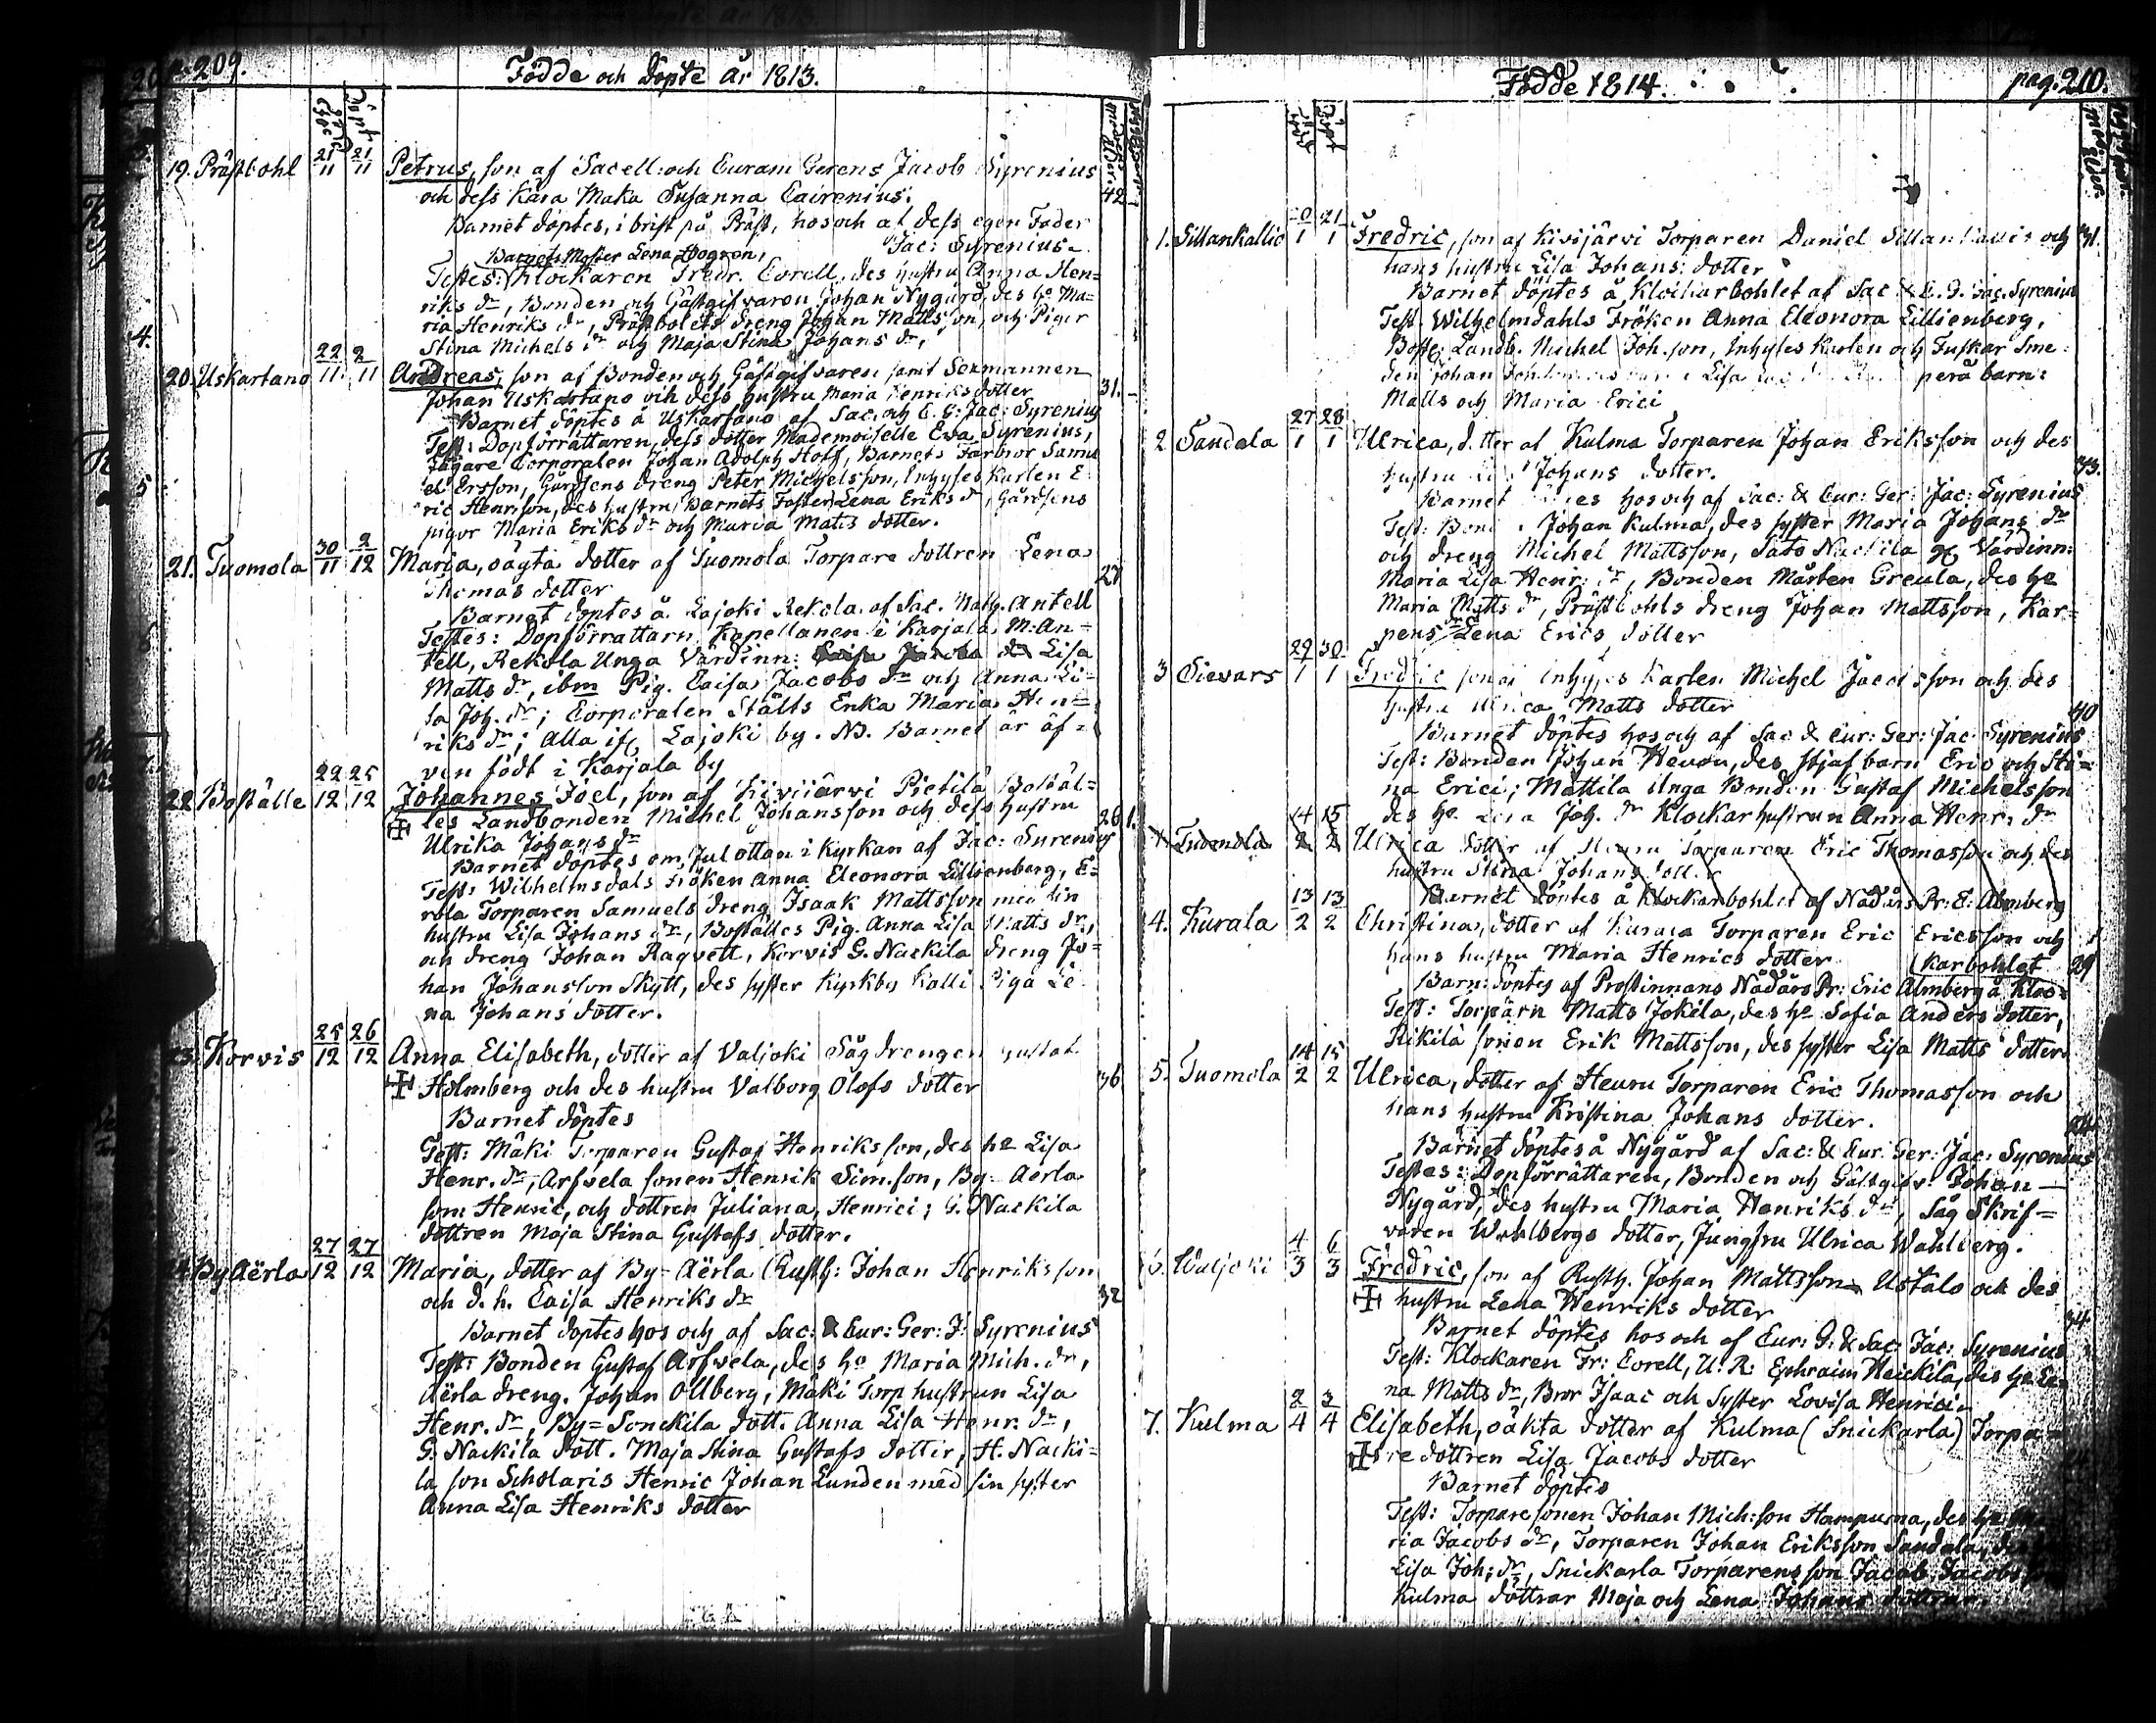 209.
Födde och Döpte År 1813.
19. Prästbohl 21/11 21/11 Petrus, son af Sacell: och Curam Gerens Jacob Syrenius
och dess Kära Maka Susanna Cairenius. 42
Barnet döptes, i brist på Präst, hos och af dess egen Fader
Jac: Syrenius
Barnets Moster Lena
Testes: Klockaren Fredr. Corell, des hustru Anna Hen=
riks dr, Bonden och Gästgifvaren Johan Nygård, des ho Ma=
ria Henriks dr, Prästbolets dreng Johan Mattsson, och Pigor
Stina Michels dr och Maja Stina Johans dr,
20. Uskartano 22/11 2/11 Andreas, son af Bonden och Gästgifvaren samt Sexmannen
Johan Uskartano och dess hustru Maria Henriks dotter 31.
Barnet döptes å Uskartano af Sac: och C. G: Jac: Syrenius
Test: Dopförrättaren, dess dotter Mademoiselle Eva Syrenius,
Fägare Corporalen Johan Adolph Hoff, Barnets Farbror Samu
el Ersson, Gårdsens dreng Peter Michelsson, Inhyses Karlen E
ric Henrsson, des hustru Barnets Faster Lena Eriks dr, Gårdsens
pigor Maria Eriks dr och Maria Matts dotter.
21. Tuomola 30/11 2/12 Maria, oägta dotter af Tuomola Torpare dottren Lena
Thomas dotter 27
Barnet döptes å Lajoki Rekola af Sac. Math. Antell
Testes: Dopförrattarn Kapellanen i Karjala M: An=
tell, Rekola Unga Värdinn: Lisa
Matts dr, ibm Pig. Caisa Jacobs dr och Anna Li=
sa Joh. dr; Corporalen Stålts Enka Maria Hen=
riks dr; Alla if Lajoki by. NB. Barnet är äf=
ven födt i Karjala by
22. Boställe 22/12 25/12 Johannes Joel, son af Kivijärvi Pietilä Boställ=
les Landbonden Michel Johansson och dess hustru 26
Ulrika Johans dr
Barnet döptes om Jul ottan i Kyrkan af Jac: Syrenius
Test: Wilhelmsdals Fröken Anna Eleonora Lillienberg, E=
rola Torparen Samuels dreng Isaak Mattsson med sin
hustru Lisa Johans dr, Boställes Pig. Anna Lisa Matts dr,
och dreng Johan Ragvett, Korvis G. Nackila dreng Jo=
han Johansson Skytt, des syster Kyrkby Kalli Piga Le
na Johans dotter.
23. Korvis 25/12 26/12 Anna Elisabeth, dotter af Valjoki Såg drengen Gustaf
Holmberg och des hustru Valborg Olofs dotter 36
Barnet döptes
Test: Mäki Torparen Gustaf Henriksson, des ho Lisa
Henr. dr, Arfvela sonen Henrik Sim.son, By-Aërla
son Henric, och dottren Juliana, Henrici; G. Nackila
dottren Maja Stina Gustafs dotter.
24. By Aërla 27/12 27/12 Maria, dotter af By-Aërla Rusth: Johan Henriksson
och d. h. Caisa Henriks dr 32
Barnet döptes hos och af Sac: & Cur: Ger: J: Syrenius
Test: Bonden Gustaf Arfvela, des ho Maria Mich. dr,
Aërla dreng. Johan Ollberg, Mäki Torp hustrun Lisa
Henr. dr, By=Sonckila dott. Anna Lisa Henr. dr,
G. Nackila dott. Maja Stina Gustafs dotter, H. Nacki=
la son Scholaris Henric Johan Lunden med sin syster
Anna Lisa Henriks dotter
Födde 1814. pag. 210.
1. Sillankallio 20/1 21/1 Fredric, son af Kivijärvi Torparen Daniel Sillankallio och 31.
hans hustru Lisa Johans: dotter
Barnet döptes å Klockarbohlet af Sac & C. G. Jac. Syrenius
Test. Wilhelmdahls Fröken Anna Eleonora Lillienberg,
Bost: Landb. Michel Joh.son, Inhyses Karlen och Fuskar Sme:
den Johan Lisa perä barn:
Matts och Maria Erici
2 Sandala 27/1 28/1 Ulrica, dotter af Kulma Torparen Johan Eriksson och des
hustru Johans dotter. 43.
Barnet hos och af Sac: & Cur: Ger: Jac: Syrenius
Test: Johan Kulma, des syster Maria Johans dr
och dreng Michel Mattsson, Sato Nackila Värdinn:
Maria Lisa Henr: dr, Bonden Mårten Greula, des ho
Maria Matts dr, Prästbohls dreng Johan Mattsson, Kar=
pens Lena Erics dotter
3 Sievars 29/1 30/1 Fredric son af Inhyses Karlen Michel Jacobsson och des
hustru Ulrica Matts dotter 40
Barnet döptes hos och af Sac & Cur: Ger: Jac: Syrenius
Test: Bonden Johan Heuru, des stjufbarn Eric och Sti=
na Erici; Mattila Unga Bonden Gustaf Michelsson
des ho Lisa Joh. dr Klockar hustrun Anna Henr. dr
4 Tuomola 14/2 15/2 Ulrica dotter af Heuru Torparen Eric Thomasson och des
hustru Stina Johans dotter
Barnet döptes å Klockarbohlet af Nådårs Pr: E: Almberg
4. Kurala 13/2 13/2 Christina, dotter af Kurala Torparen Eric Ericsson och
hans hustru Maria Henrics dotter (karbohlet 29
Barn: döptes af Prostinnans Nådårs Pr: Eric Almberg å Kloc=
Test: Torparn Matts Jokela, des ho Sofia Anders dotter,
Rikilä sonen Erik Mattsson, des syster Lisa Matts dotter
5. Tuomola 14/2 15/2 Ulrica, dotter af Heuru Torparen Eric Thomasson och
hans hustru Kristina Johans dotter.
Barnet döptes å Nygård af Sac: & Cur. Ger: Jac: Syrenius
Testes: Dopförrättaren, Bonden och Gästgifv: Johan
Nygård, des hustru Maria Henriks dr, Såg Skrif=
varen Wahlbergs dotter, Jungfru Ulrica Wahlberg.
6. Waljoki 4/3 6/3 Fredric, son af Rusth. Johan Mattsson Ustalo och des
hustru Lena Henriks dotter 34.
Barnet döptes hos och af Cur: G: & Sac: Jac: Syrenius
Test: Klockaren Fr: Corell, U: R: Ephraim Heickila, des ho Le=
na Matts dr, Bror Isaac och Syster Lovisa Henrici
7. Kulma 2/4 3/4 Elisabeth, oäkta dotter af Kulma (Snickarla) Torpa=
re dottren Lisa Jacobs dotter
Barnet döptes
Test: Torpare sonen Johan Mich:son Hampuma, des ho Ma
ria Jacobs dr, Torparen Johan Eriksson Sandala, des
Lisa Joh: dr, Snickarla Torparens son Jacob Jacobsson
Kulma döttrar Maja och Lena Johans döttrar.